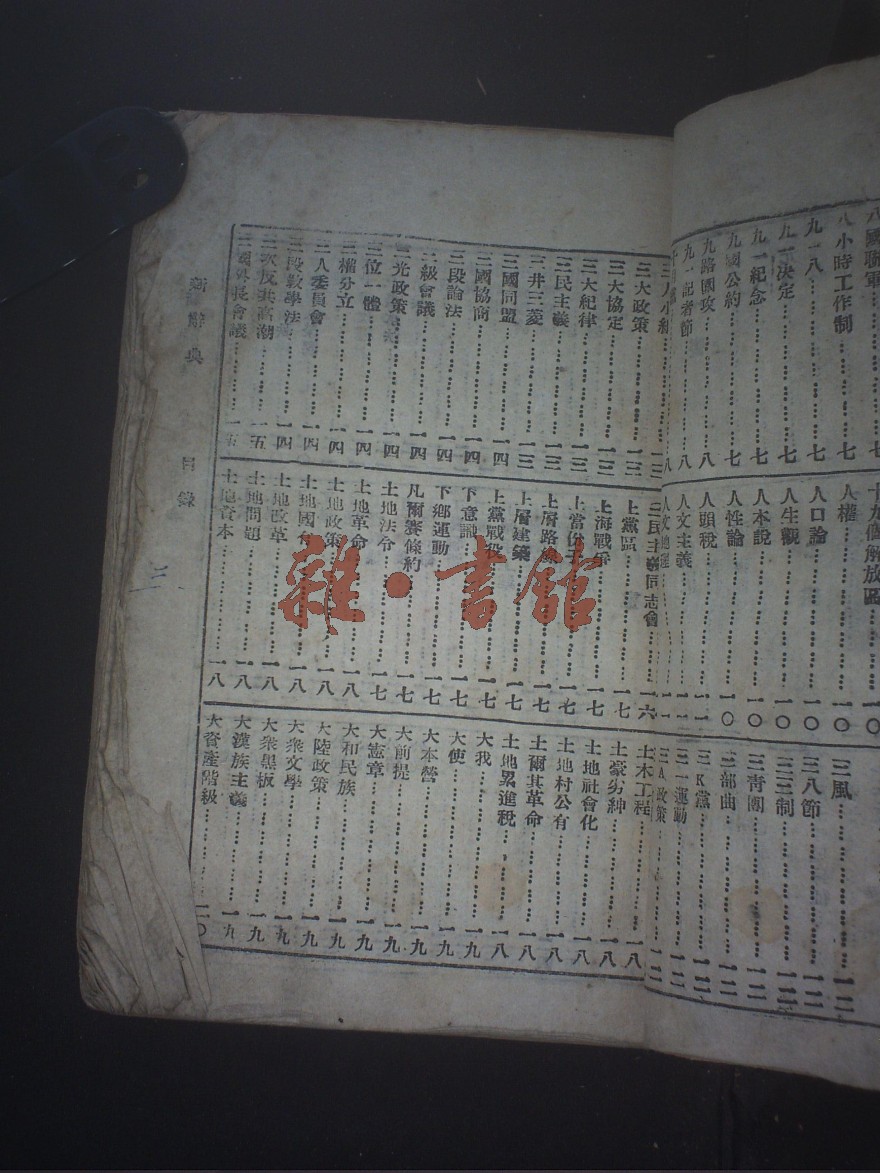 八國聯軍
八小時工作制……七
九一八……七
九一決定……七
九一紀念……七
九國公約……七
九路圍攻……八
九一記者節……八
十九個解放區……一〇
人權……一〇
人口論……一〇
人生觀……一〇
人本說……一〇
人性論……一〇
人頭稅……一一
人文主義……一一
人文地理……一一
三風……一二
三八節……一二
三三制……一二
三青團……一二
三部曲……一二
三K黨……一二
三一運動……一二
三A政策……一二
三人小組……一三
三大政策……一三
三大協定……一三
三大紀律……一三
三民主義……一三
三井三菱……一三
三國同盟……一四
三國協商……一四
三段論法……一四
三級會議……一四
三光政策……一四
三位一體……一四
三權分立……一四
三人委員會……一四
三段教學法……一四
三次反共高潮……一五
三國外長會議……一五
三民主義同志會……一六
上黨區……一七
上海戰爭……一七
上當份子……一七
上層路線……一七
上層建築……一七
上黨戰役……一七
下意識……一七
下鄉運動……一七
凡爾賽條約……一七
土地法令……一七
土地革命……一八
土地政策……一八
土地國有……一八
土地改革……一八
土地問題……一八
土地資本……一八
土木工程……一八
土豪劣紳……一八
土地社會化……一八
土地村公有……一八
土爾其革命……一八
土地累進稅……一八
大我……一九
大使……一九
大本營……一九
大前提……一九
大憲章……一九
大和民族……一九
大陸政策……一九
大衆文學……一九
大衆黑板……一九
大漢族主義……一九
大資產階級……二〇
新辭典 目錄
三
雜·書館